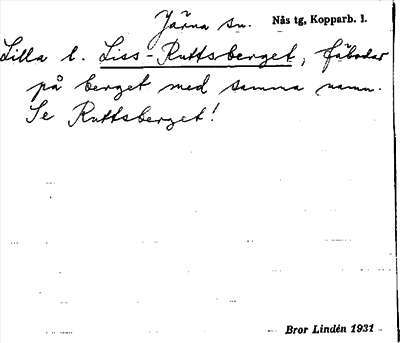 Järna sn. Nås tg, Kopparb. l.
Lilla l. Liss-Ruttsberget, fäbodar
på berget med samma namn.
Se Ruttsberget!
Bror Lindén 1931